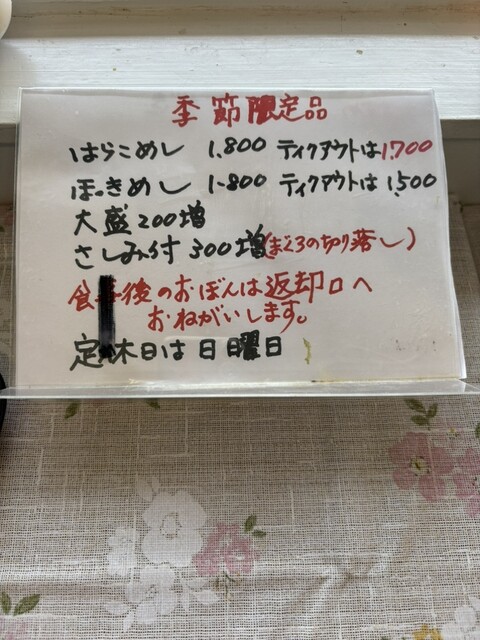 季節限定品
はらこめし 1.800 テイクアウトは1.700
ほっきめし 1.800 テイクアウトは1,500
大盛200増
さしみ付 300増(まぐろの切り落し)
食事後のおぼんは返却口へ
おねがいします。
定休日は日曜日